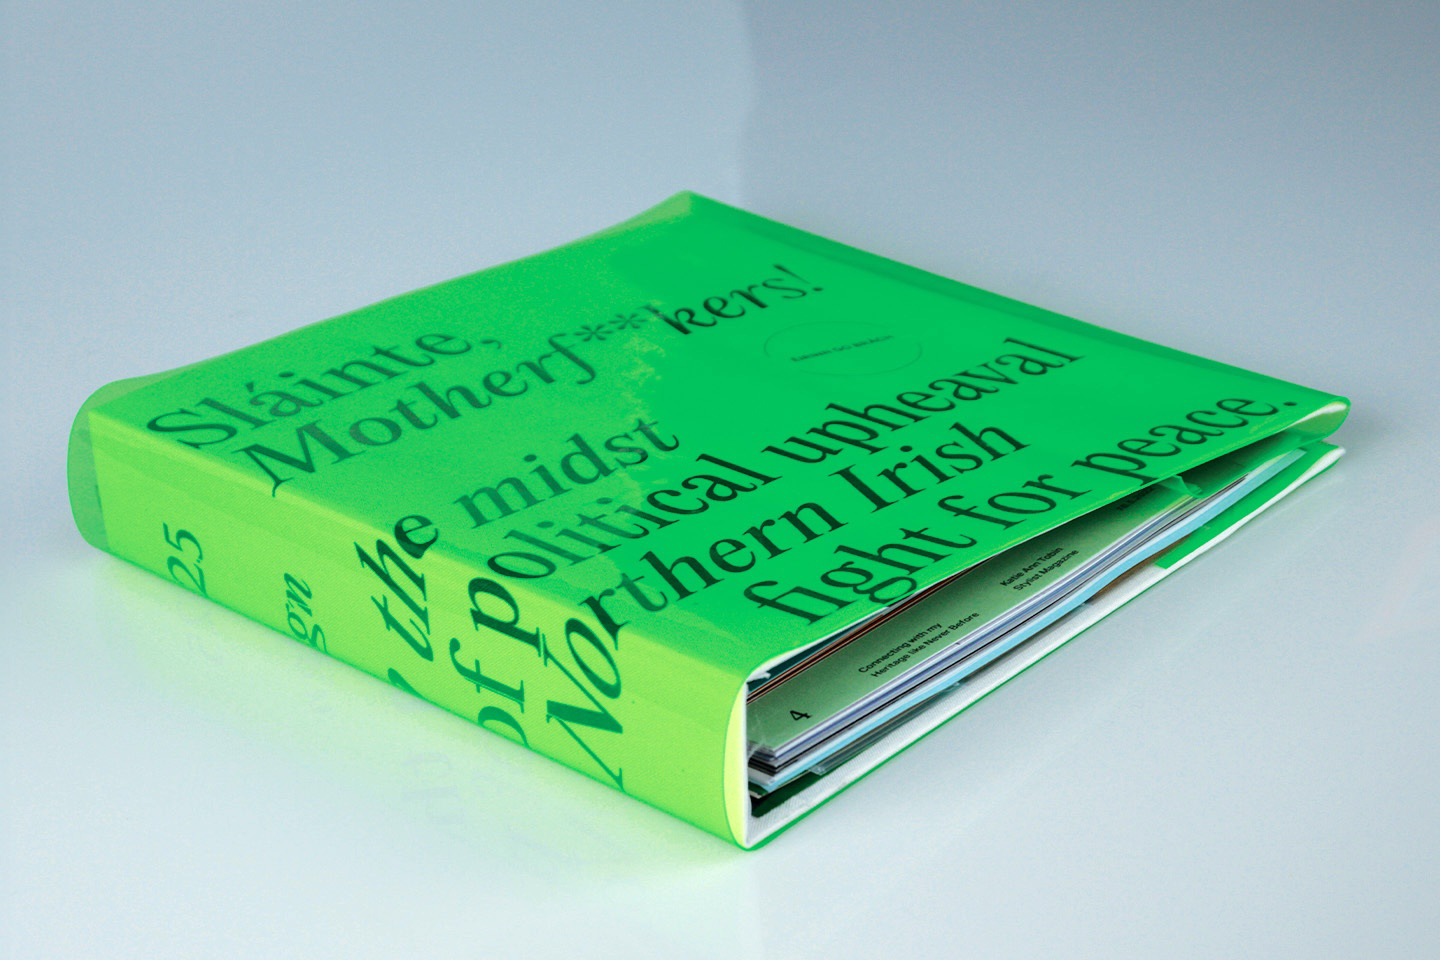 Sláinte,
Motherf**kers!
the midst
of political upheaval
Northern Irish
fight for peace.
25
Katie Ann Tobin
Stylist Magazine
Connecting with my
Heritage like Never Before
4